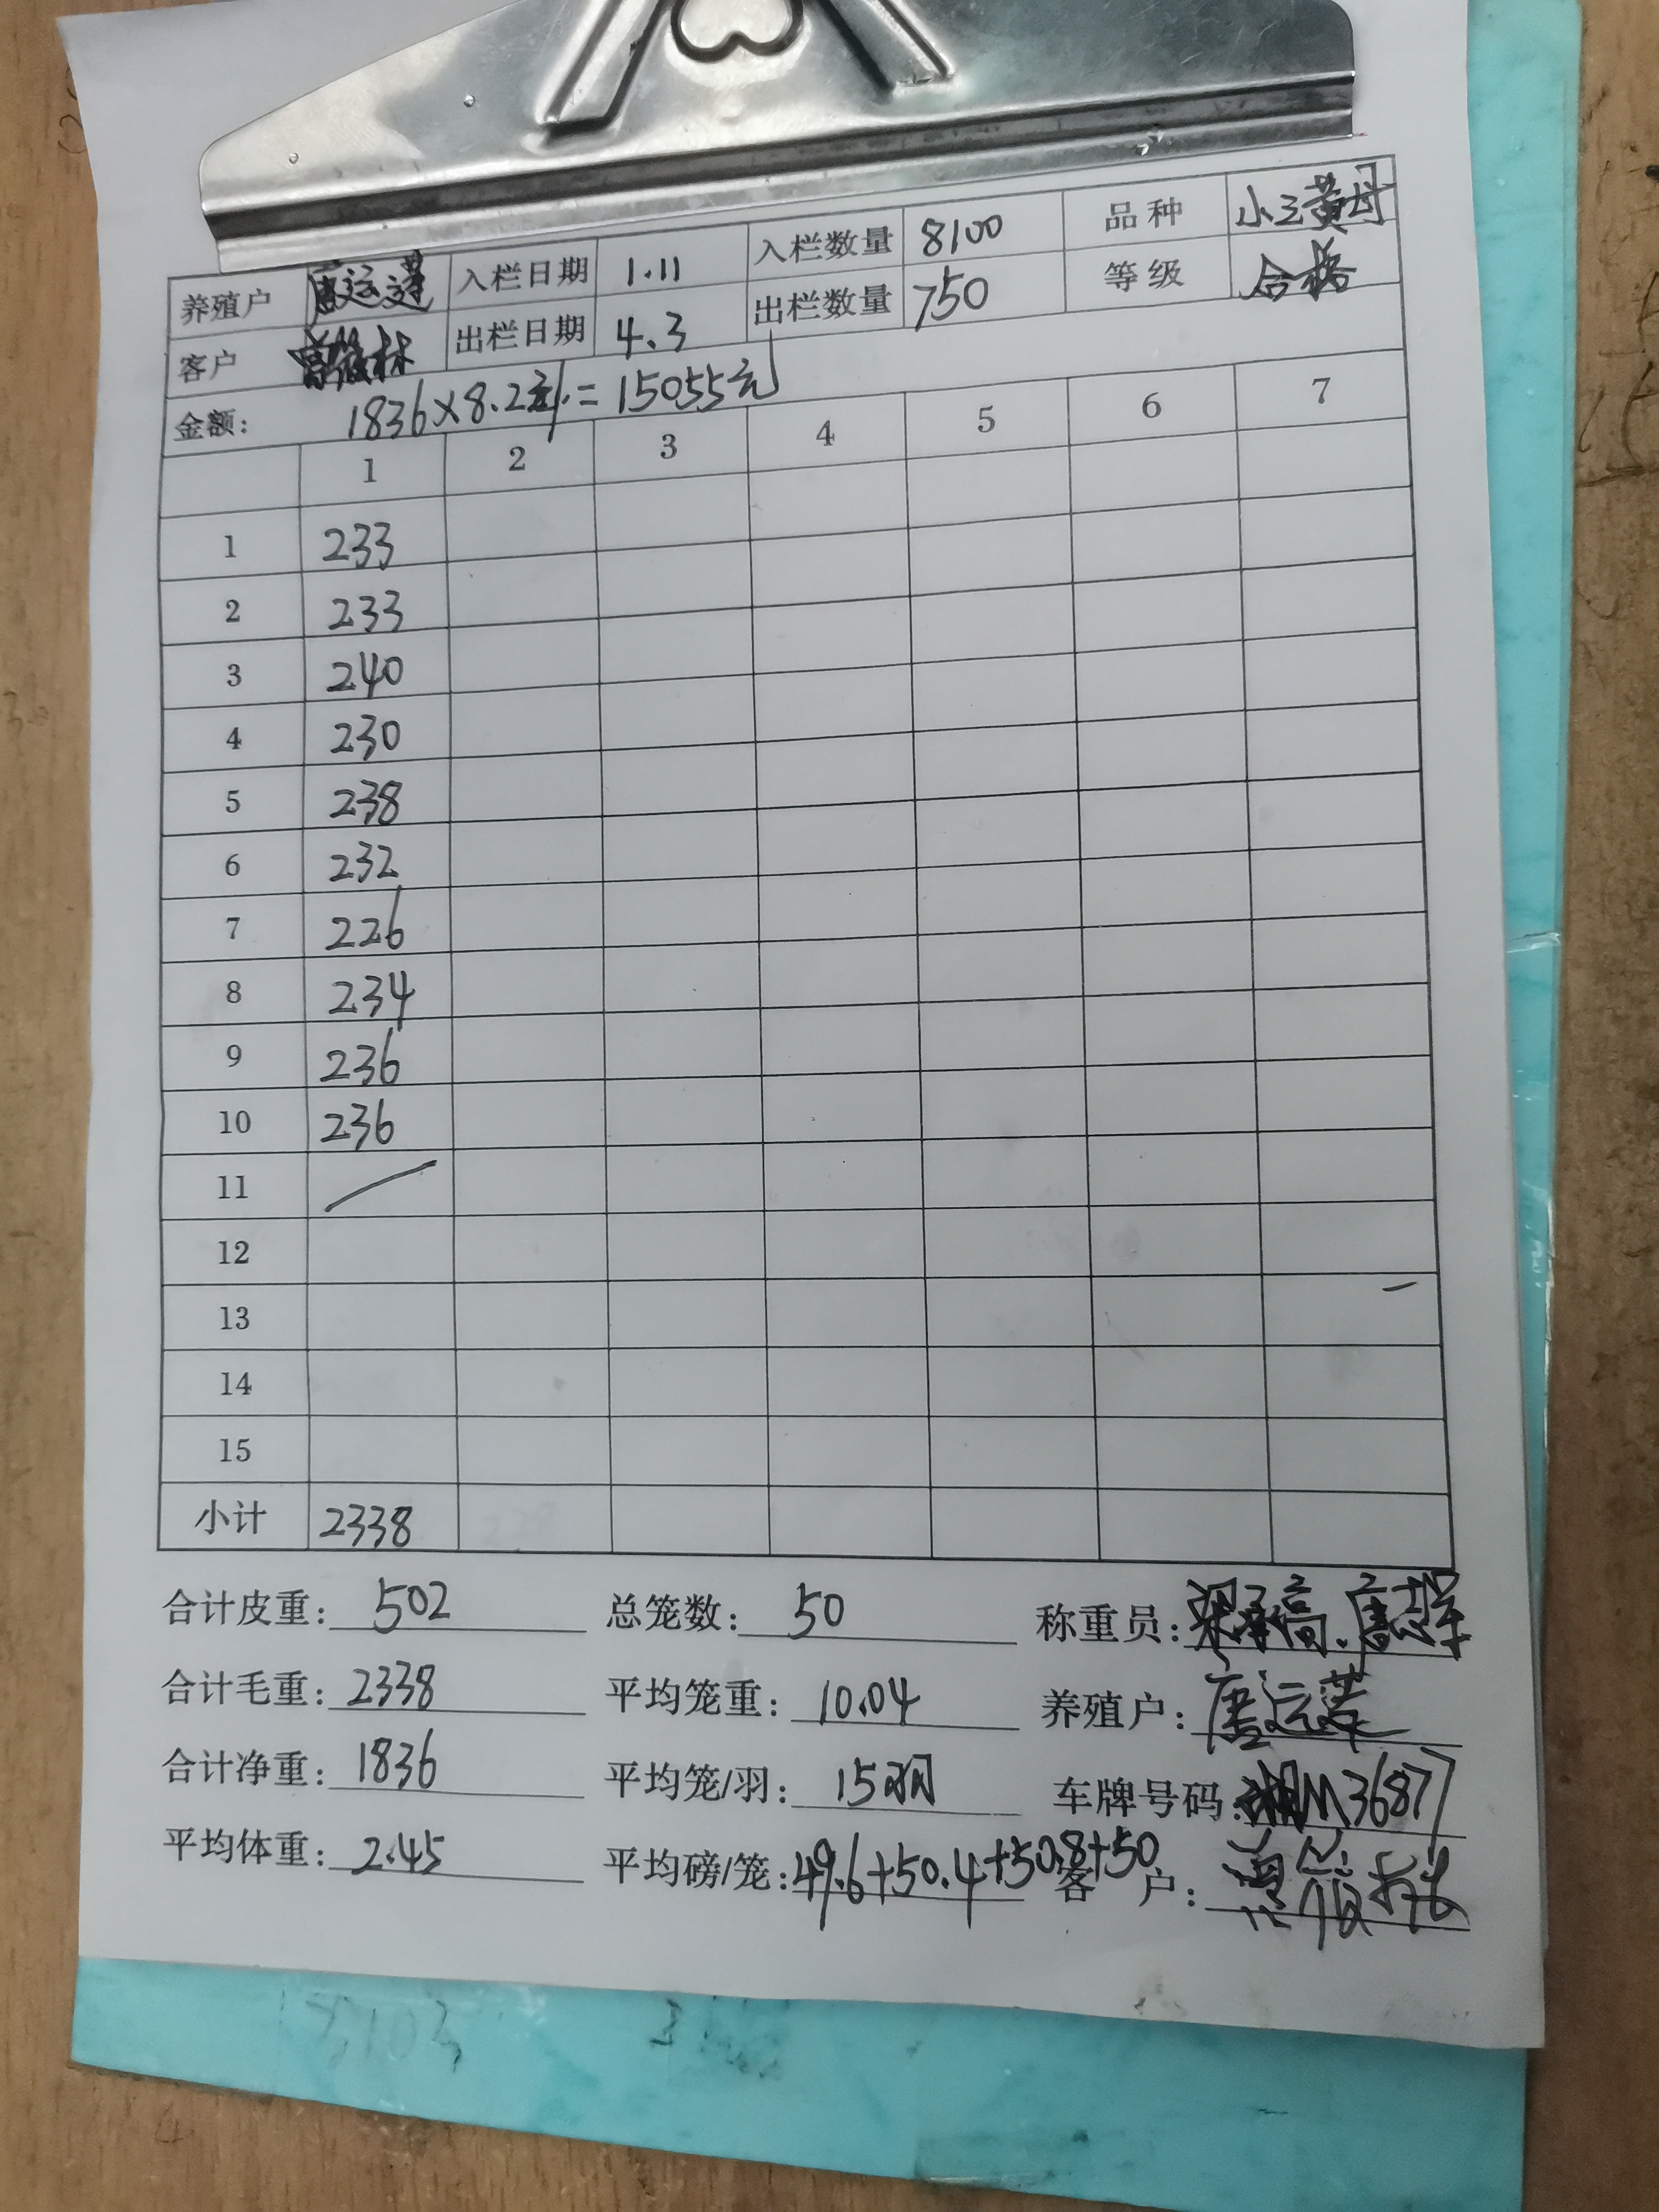 养殖户 唐运莲 入栏日期 1.11 入栏数量 8100 品种 小三黄母
客户 出栏日期 4.3 出栏数量 750 等级 合格
金额: 1836×8.2元/斤=15055元
1 2 3 4 5 6 7
1 233
2 233
3 240
4 230
5 238
6 232
7 226
8 234
9 236
10 236
11
12
13
14
15
小计 2338
合计皮重: 502 总笼数: 50 称重员: 梁承高.唐志军
合计毛重: 2338 平均笼重: 10.04 养殖户: 唐运莲
合计净重: 1836 平均笼/羽: 15羽 车牌号码: 湘M36877
平均体重: 2.45 平均磅/笼: 49.6+50.4+50.8+50 客 户: